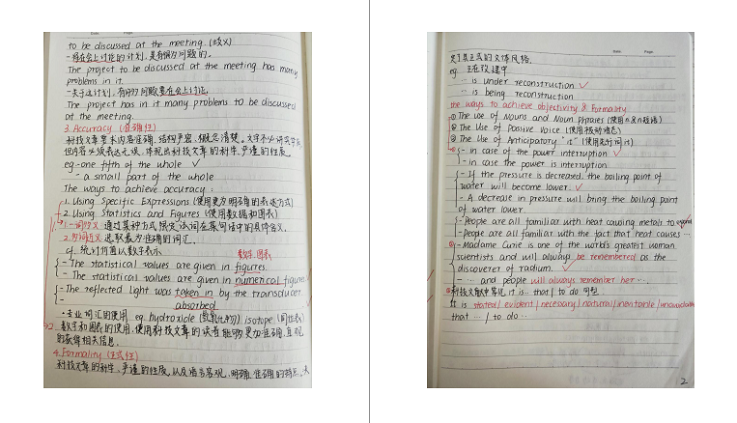 to be discussed at the meeting. (歧义)
-将在会上讨论的计划,是有很多问题的。
The project to be discussed at the meeting has many
problems in it.
-关于这计划,有很多问题要在会上讨论。
The project has in it many problems to be discussed
at the meeting.
3. Accuracy (准确性)
科技文章要求内容准确,结构严密,概念清楚。
科技文章的科学、严谨的性质。
eg - one fifth of the whole ✓
- a small part of the whole
The ways to achieve accuracy:
1. Using Specific Expressions (使用更为明确的表达方式)
2. Using Statistics and Figures (使用数据和图表)
1.一词多义 通过某种方式限定该词在某句话中的具体含义。
2. 选取最为准确的词汇。
cf. 统计何图以数字表示 数字,图表
- The statistical values are given in figures.
- The statistical values are given in numerical figures
- The reflected light was taken in by the transducer.
- absorbed
-专业词汇的使用 eg. hydroxide (氢氧化物) isotope (同位素)
数字和图表的使用,使用科技文章的读者能够更加准确,直观
的获得相关信息。
4. Formality (正式性)
科技文章的科学、严谨的性质,以及语言客观、明确、准确的特点,
更正式的文体风格
eg. 正在改建中
- is under reconstruction ✓
- is being reconstruction
the ways to achieve objectivity & Formality
① The use of Nouns and Noun Phrases (使用)
② The Use of Passive Voice (使用被动语态)
③ The Use of Anticipatory "it" (使用先行词it)
- in case of the power interruption ✓
- in case the power is interruption
- If the pressure is decreased, the boiling point of
water will become lower. ✓
- A decrease in pressure will bring the boiling point
of water lower.
- People are all familiar with heat causing metals to expand
- People are all familiar with the fact that heat causes …
- Madame Curie is one of the world's greatest woman
scientists and will always be remembered as the
discoverer of radium. ✓
- … and people will always remember her ….
科技文献中常见 it is … that / to do 句型
It is stated / evident / necessary / natural / inevitable / unavoidable
that … / to do …
2